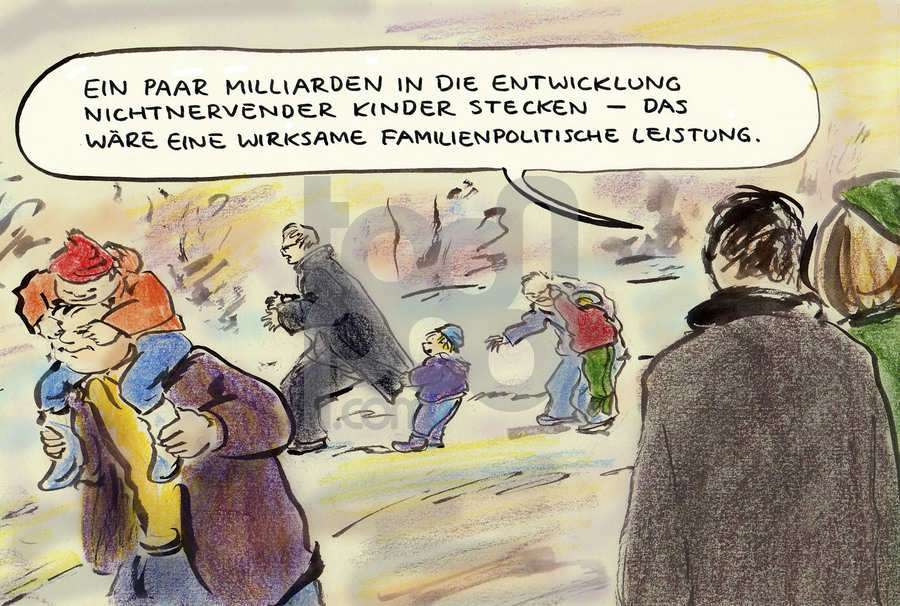 EIN PAAR MILLIARDEN IN DIE ENTWICKLUNG
NICHTNERVENDER KINDER STECKEN – DAS
WÄRE EINE WIRKSAME FAMILIENPOLITISCHE LEISTUNG.
.com